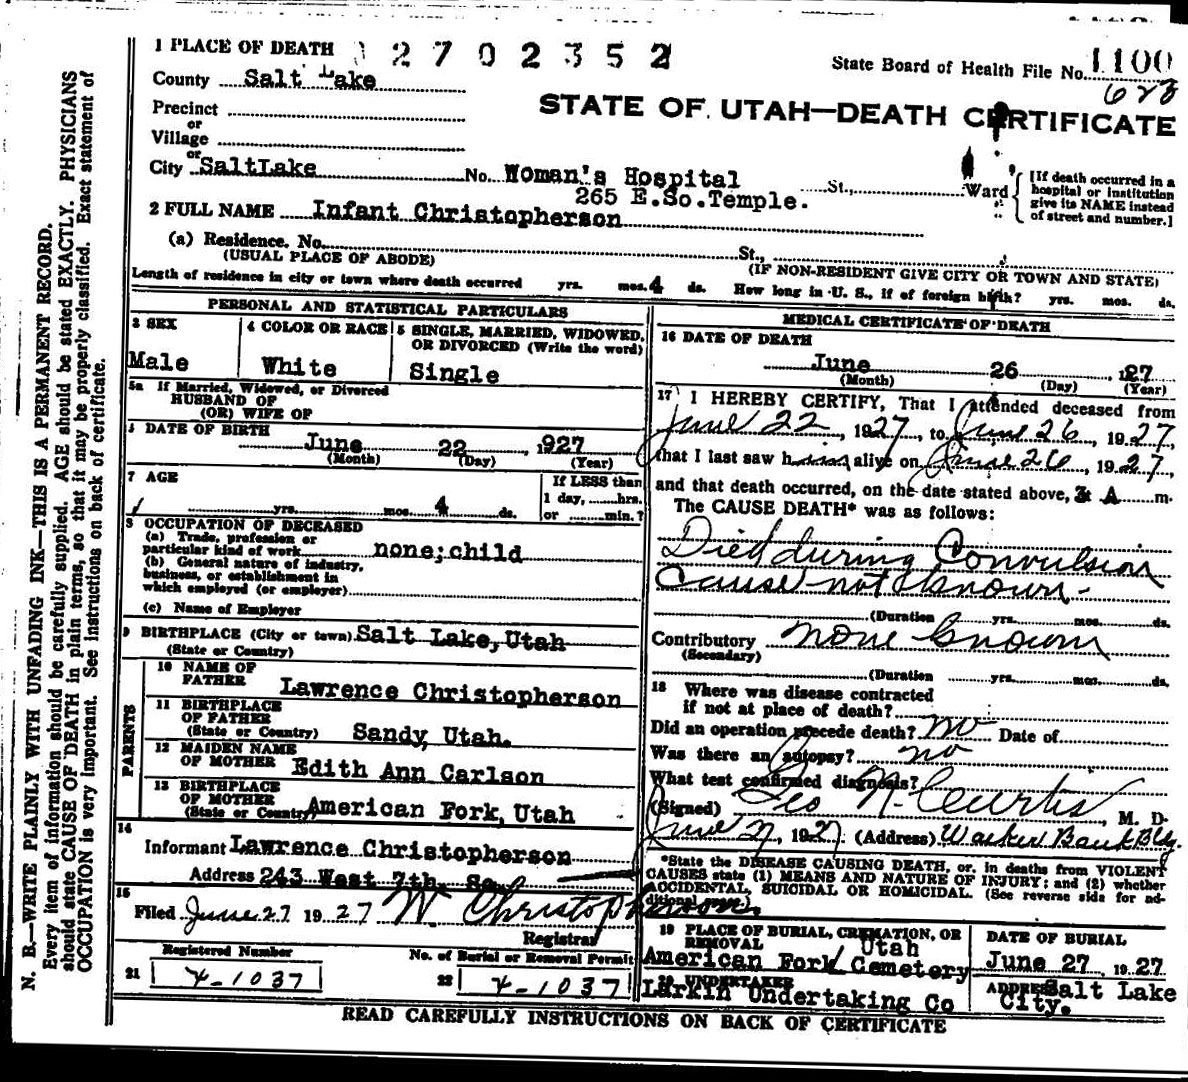 1 PLACE OF DEATH 2 7 0 2 3 5 2
State Board of Health File No. 1100
623
County Salt Lake
STATE OF UTAH—DEATH CERTIFICATE
Precinct
or
Village
or
City SaltLake No. Woman's Hospital St., Ward
265 E.So.Temple.
[If death occurred in a
hospital or institution
give its NAME instead
of street and number.]
2 FULL NAME Infant Christopherson
(a) Residence. No. St.,
(USUAL PLACE OF ABODE) (IF NON-RESIDENT GIVE CITY OR TOWN AND STATE)
Length of residence in city or town where death occurred yrs. mos. 4 ds. How long in U. S., if of foreign birth? yrs. mos. ds.
PERSONAL AND STATISTICAL PARTICULARS
3 SEX 4 COLOR OR RACE 5 SINGLE, MARRIED, WIDOWED,
OR DIVORCED (Write the word)
Male White Single
5a If Married, Widowed, or Divorced
HUSBAND OF
(OR) WIFE OF
DATE OF BIRTH
June 22, 1927
(Month) (Day) (Year)
7 AGE
If LESS than
1 day, hrs.
yrs. mos. 4 ds. or min.?
8 OCCUPATION OF DECEASED
(a) Trade, profession or
particular kind of work none;child
(b) General nature of industry,
business, or establishment in
which employed (or employer)
(c) Name of Employer
9 BIRTHPLACE (City or town) Salt Lake, Utah
(State or Country)
PARENTS
10 NAME OF
FATHER Lawrence Christopherson
11 BIRTHPLACE
OF FATHER
(State or Country) Sandy, Utah.
12 MAIDEN NAME
OF MOTHER Edith Ann Carlson
13 BIRTHPLACE
OF MOTHER
(State or Country) American Fork, Utah
14
Informant Lawrence Christopherson
Address 243 West 7th. So.
15
Filed June 27 1927 W Christopherson
Registrar
Registered Number No. of Burial or Removal Permit
21 4-1037 22 4-1037
MEDICAL CERTIFICATE OF DEATH
16 DATE OF DEATH
June 26, 1927
(Month) (Day) (Year)
17 I HEREBY CERTIFY, That I attended deceased from
June 22, 1927, to June 26, 1927,
that I last saw him alive on June 26, 1927,
and that death occurred, on the date stated above, 3 A m.
The CAUSE DEATH* was as follows:
Died during Convulsion
Cause not known -
(Duration yrs. mos. ds.
Contributory none known
(Secondary)
(Duration yrs. mos. ds.
18 Where was disease contracted
if not at place of death?
Did an operation precede death? no Date of
Was there an autopsy? no
What test confirmed diagnosis?
(Signed) Geo N. Curtis, M. D.
June 27, 1927 (Address) Walker Bank Bldg.
*State the DISEASE CAUSING DEATH, or, in deaths from VIOLENT
CAUSES state (1) MEANS AND NATURE OF INJURY; and (2) whether
ACCIDENTAL, SUICIDAL OR HOMICIDAL. (See reverse side for ad-
ditional space.)
19 PLACE OF BURIAL, CREMATION, OR
REMOVAL Utah
American Fork Cemetery
DATE OF BURIAL
June 27, 1927
20 UNDERTAKER
Larkin Undertaking Co
ADDRESS Salt Lake
City.
READ CAREFULLY INSTRUCTIONS ON BACK OF CERTIFICATE
N. B.—WRITE PLAINLY WITH UNFADING INK—THIS IS A PERMANENT RECORD.
Every item of information should be carefully supplied. AGE should be stated EXACTLY. PHYSICIANS
should state CAUSE OF DEATH in plain terms, so that it may be properly classified. Exact statement of
OCCUPATION is very important. See instructions on back of certificate.